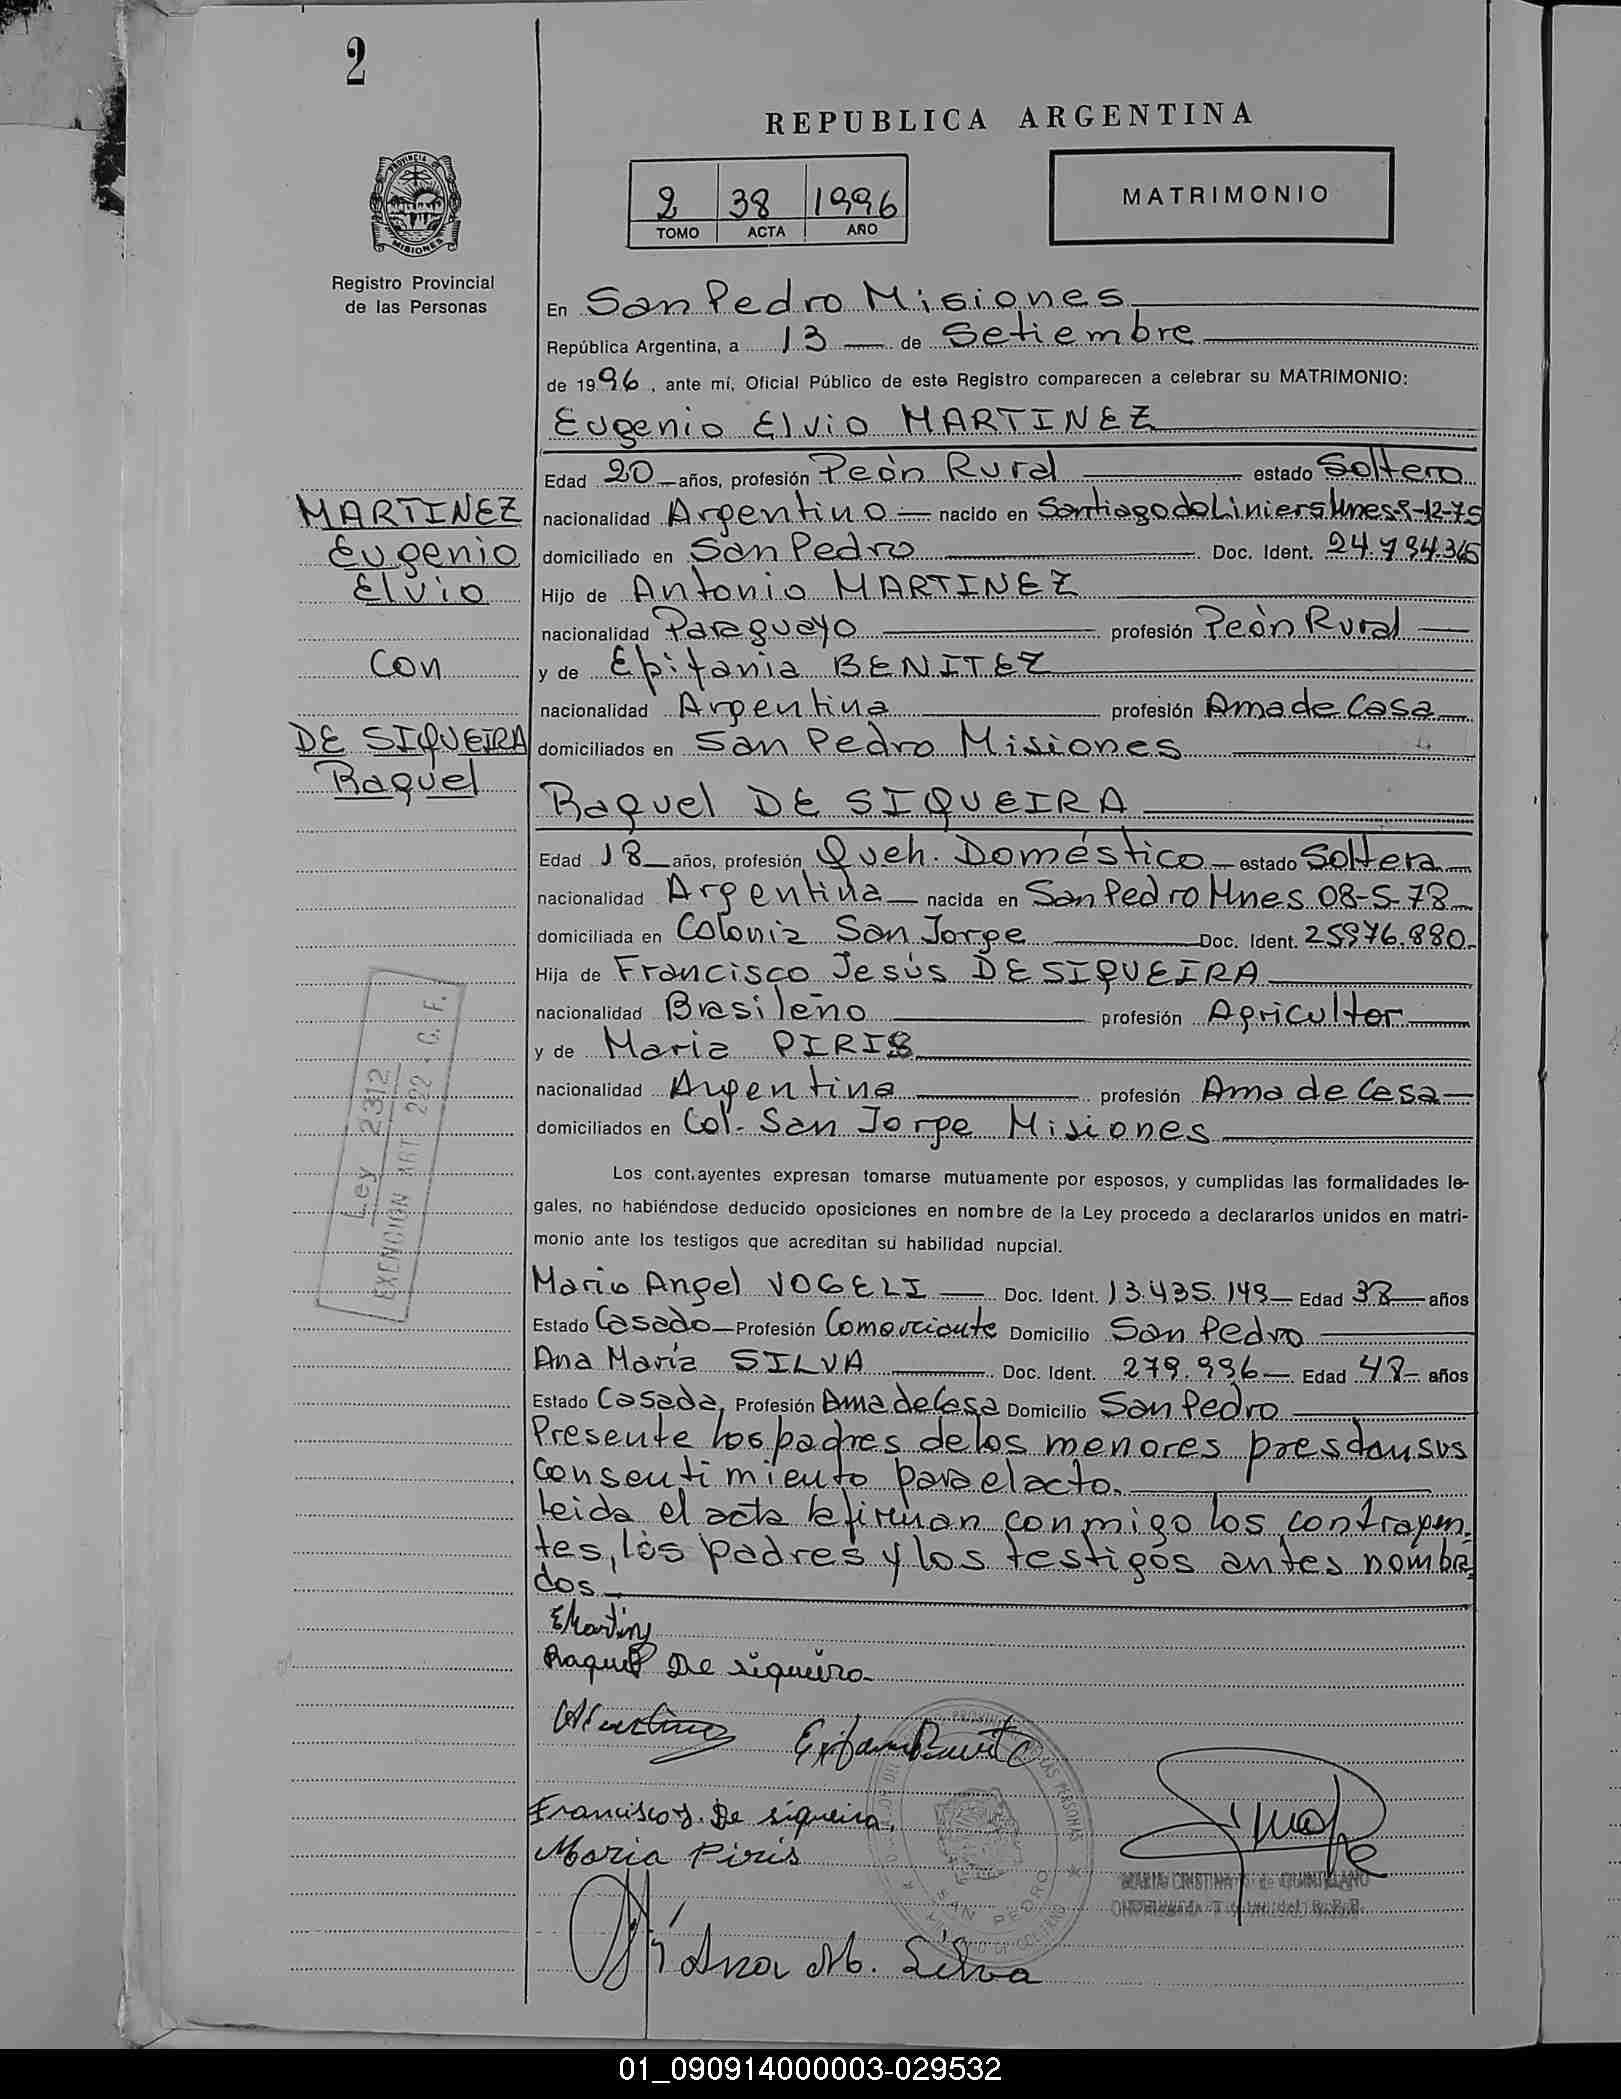 2
REPUBLICA ARGENTINA
PROVINCIA DE
MISIONES
2 38 1996
TOMO ACTA AÑO
MATRIMONIO
Registro Provincial
de las Personas
En San Pedro Misiones
República Argentina, a 13 de Setiembre
de 1996, ante mí, Oficial Público de este Registro comparecen a celebrar su MATRIMONIO:
Eugenio Elvio MARTINEZ
Edad 20 años, profesión Peòn Rural estado Soltero
MARTINEZ
Eugenio
Elvio
con
DE SIQUEIRA
Raquel
nacionalidad Argentino nacido en Santiago de Liniers Mnes 9-12-75
domiciliado en San Pedro Doc. Ident.
Hijo de Antonio MARTINEZ
nacionalidad Paraguayo profesión Peòn Rural
y de Epifania BENITEZ
nacionalidad Argentina profesión Ama de Casa
domiciliados en San Pedro Misiones
Raquel DE SIQUEIRA
Edad 18 años, profesión Queh. Doméstico estado Soltera
nacionalidad Argentina nacida en San Pedro Mnes 08-5-78
domiciliada en Colonia San Jorge Doc. Ident. 25976.880
Hija de Francisco Jesús DE SIQUEIRA
nacionalidad Brasileño profesión Agricultor
y de Maria PIRIS
nacionalidad Argentina profesión Ama de Casa
domiciliados en Col. San Jorge Misiones
Ley 2312
EXENCION ART 222 C. F.
Los cont.ayentes expresan tomarse mutuamente por esposos, y cumplidas las formalidades le-
gales, no habiéndose deducido oposiciones en nombre de la Ley procedo a declararlos unidos en matri-
monio ante los testigos que acreditan su habilidad nupcial.
Mario Angel VOGELI Doc. Ident. 13.435.149 Edad 38 años
Estado Casado Profesión Comerciante Domicilio San Pedro
Ana María SILVA Doc. Ident. 279.996 Edad 48 años
Estado Casada, Profesión Ama de Casa Domicilio San Pedro
Presente los padres de los menores presdan sus
consentimiento para el acto.
Leida el acta la firman conmigo los contrayen-
tes, los padres y los testigos antes nombra-
dos
EMartinz
Raquel De siqueira
Francisco J. De siqueira.
Maria Piris
SAN PEDRO
MARIA CRISTINA
Ana M. Silva
01_090914000003-029532